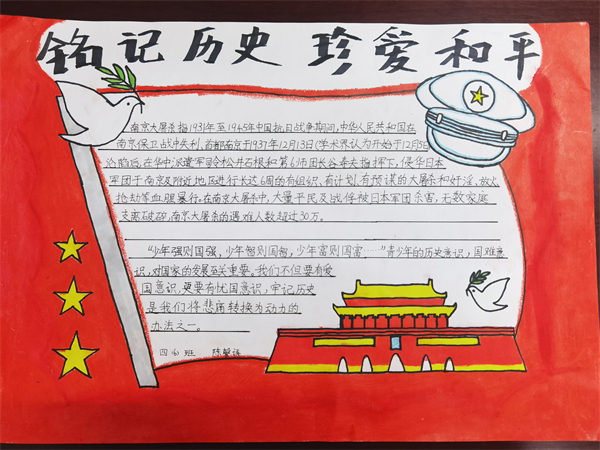 铭记历史 珍爱和平
南京大屠杀指1931年至1945年中国抗日战争期间，中华人民共和国在
南京保卫战中失利、首都南京于1937年12月13日(学术界认为开始于12月5日
沦陷后，在华中派遣军司令松井石根和第6师团长谷寿夫指挥下，侵华日本
军团于南京及附近地区进行长达6周的有组织、有计划、有预谋的大屠杀和奸淫、放火
抢劫等血腥暴行。在南京大屠杀中，大量平民及战俘被日本军团杀害，无数家庭
支离破碎，南京大屠杀的遇难人数超过30万。
“少年强则国强，少年智则国智，少年富则国富……”青少年的历史意识，国难意
识，对国家的发展至关重要。我们不但要有爱
国意识，更要有忧国意识，牢记历史
是我们将悲痛转换为动力的
办法之一。
四 班 陈